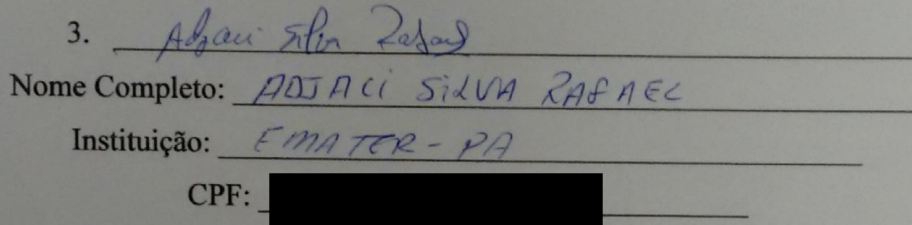 3. Adjaci Silva Rafael
Nome Completo: ADJACI SILVA RAFAEL
Instituição: EMATER-PA
CPF: